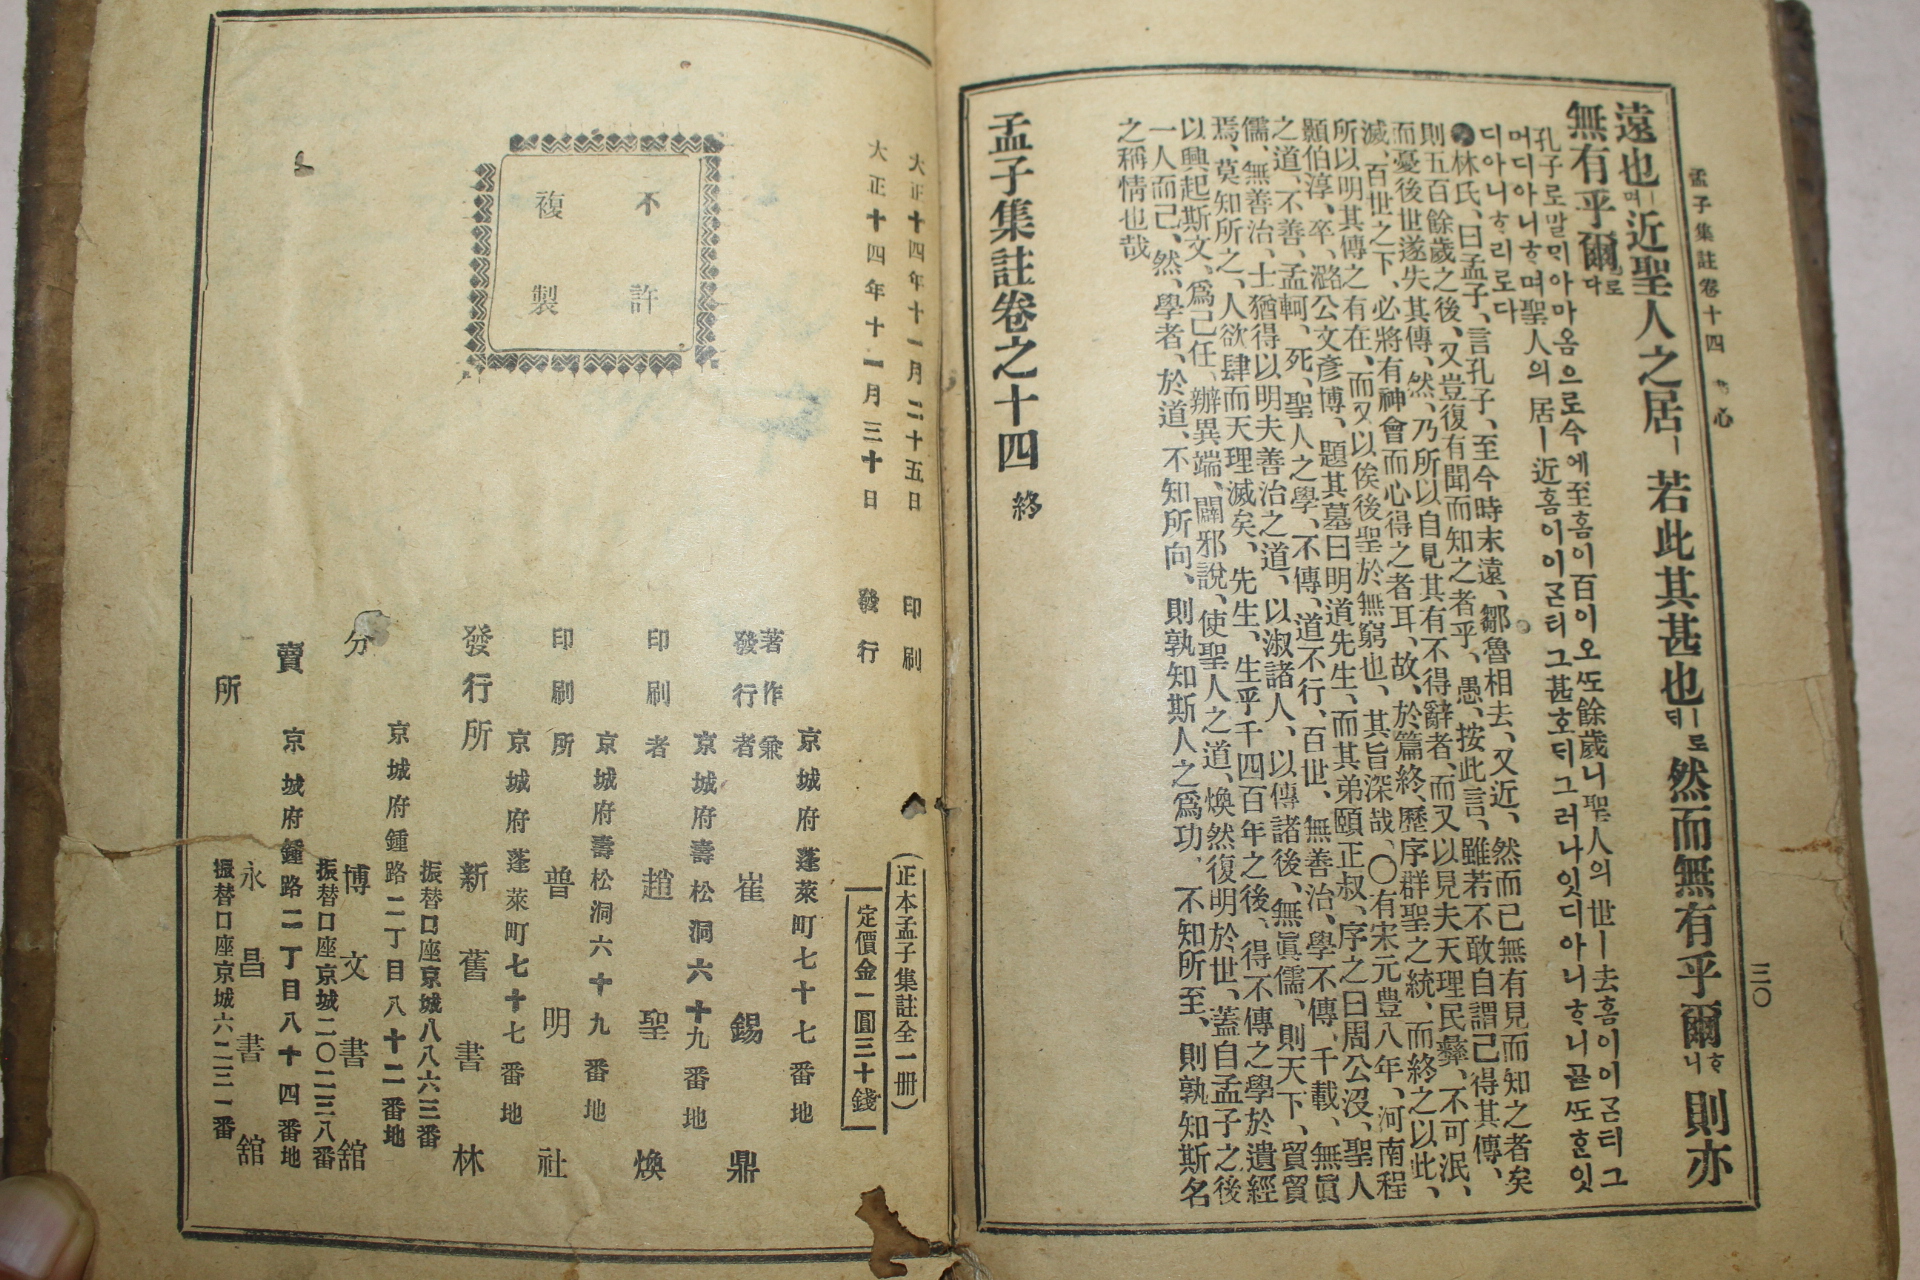 孟子集註卷十四 心
三〇
遠也ㅣ며近聖人之居ㅣ若此其甚也ㅣ로ᄃᆡ然而無有乎爾ᄒᆞ니則亦
無有乎爾로다
孔子로말ᄆᆡ아마옴으로今에至홈이百이오ᄯᅩ餘歲니聖人의世ㅣ去홈이이ᄀᆞᆮ티그
머디아니ᄒᆞ며聖人의居ㅣ近홈이이ᄀᆞᆮ티그甚호ᄃᆡ그러나잇디아니ᄒᆞ니곧ᄯᅩᄒᆞᆫ잇
디아니ᄒᆞ리로다
林氏、曰孟子、言孔子、至今時未遠、鄒魯相去、又近、然而已無有見而知之者矣
則五百餘歲之後、又豈復有聞而知之者乎、愚、按此言、雖若不敢自謂己得其傳、
而憂後世遂失其傳、然、乃所以自見其有不得辭者、而又以見夫天理民彝、不可泯、
滅、百世之下、必將有神會而心得之者耳、故、於篇終、歷序群聖之統、而終之以此、
所以明其傳之有在、而又以俟後聖於無窮也、其旨深哉、〇有宋元豊八年、河南程
顥伯淳、卒、潞公文彦博、題其墓曰明道先生、而其弟頤正叔、序之曰周公沒、聖人
之道、不善、孟軻、死、聖人之學、不傳、道不行、百世、無善治、學不傳、千載、無眞
儒、無善治、士猶得以明夫善治之道、以淑諸人、以傳諸後、無眞儒、則天下、貿貿
焉、莫知所之、人欲肆而天理滅矣、先生、生乎千四百年之後、得不傳之學於遺經
以興起斯文、爲己任、辦異端、闢邪說、使聖人之道、煥然復明於世、蓋自孟子之後
一人而己、然、學者、於道、不知所向、則孰知斯人之爲功、不知所至、則孰知斯名
之稱情也哉
孟子集註卷之十四 終
大正十四年十一月二十五日 印刷
大正十四年十一月三十日 發行
不許
複製
(正本孟子集註全一冊)
定價金一圓三十錢
京城府蓬萊町七十七番地
著作兼
發行者 崔錫鼎
京城府壽松洞六十九番地
印刷者 趙聖煥
京城府壽松洞六十九番地
印刷所 普明社
京城府蓬萊町七十七番地
發行所 新舊書林
振替口座京城八八六三番
京城府鍾路二丁目八十二番地
分 博文書舘
振替口座京城二〇二三八番
京城府鍾路二丁目八十四番地
賣 永昌書舘
所 振替口座京城六二三一番